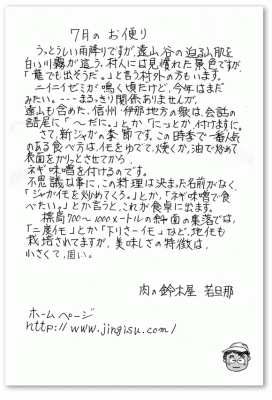 7月の お便り
うっとうしい雨降りですが、遠山谷の迫る山肌を
白い川霧が這う、村人には見慣れた景色ですが、
「龍でも出そうだ。」と言う村外の方もいます。
ニイニイゼミが鳴く頃だけど、今年はまだ
みたい。---まるっきり関係ありませんが、
遠山も含めた、信州・伊那地方の衆は、会話の
語尾に「〜だに。」とか「にっ」とか付けますに。
さて、新ジャガの季節です。この時季で一番人気
のある食べ方は、芋をゆでて、焼くか、油で炒めて
表面をかりっとさせてから、
ネギ味噌を付けるのです。
不思議な事に、この料理は決まった名前がなく、
「ジャガ芋を炒めてくろ。」とか「ネギ味噌で食
べたい。」とか言うと、これが食卓に出ます。
標高700〜1000メートルの斜面の集落では、
「二度芋」とか「下りさーイモ」など、地芋も
栽培されてますが、美味しさの特徴は、
小さくて、固い。
肉の鈴木屋 若旦那
ホームページ
http://www.jingisu.com/